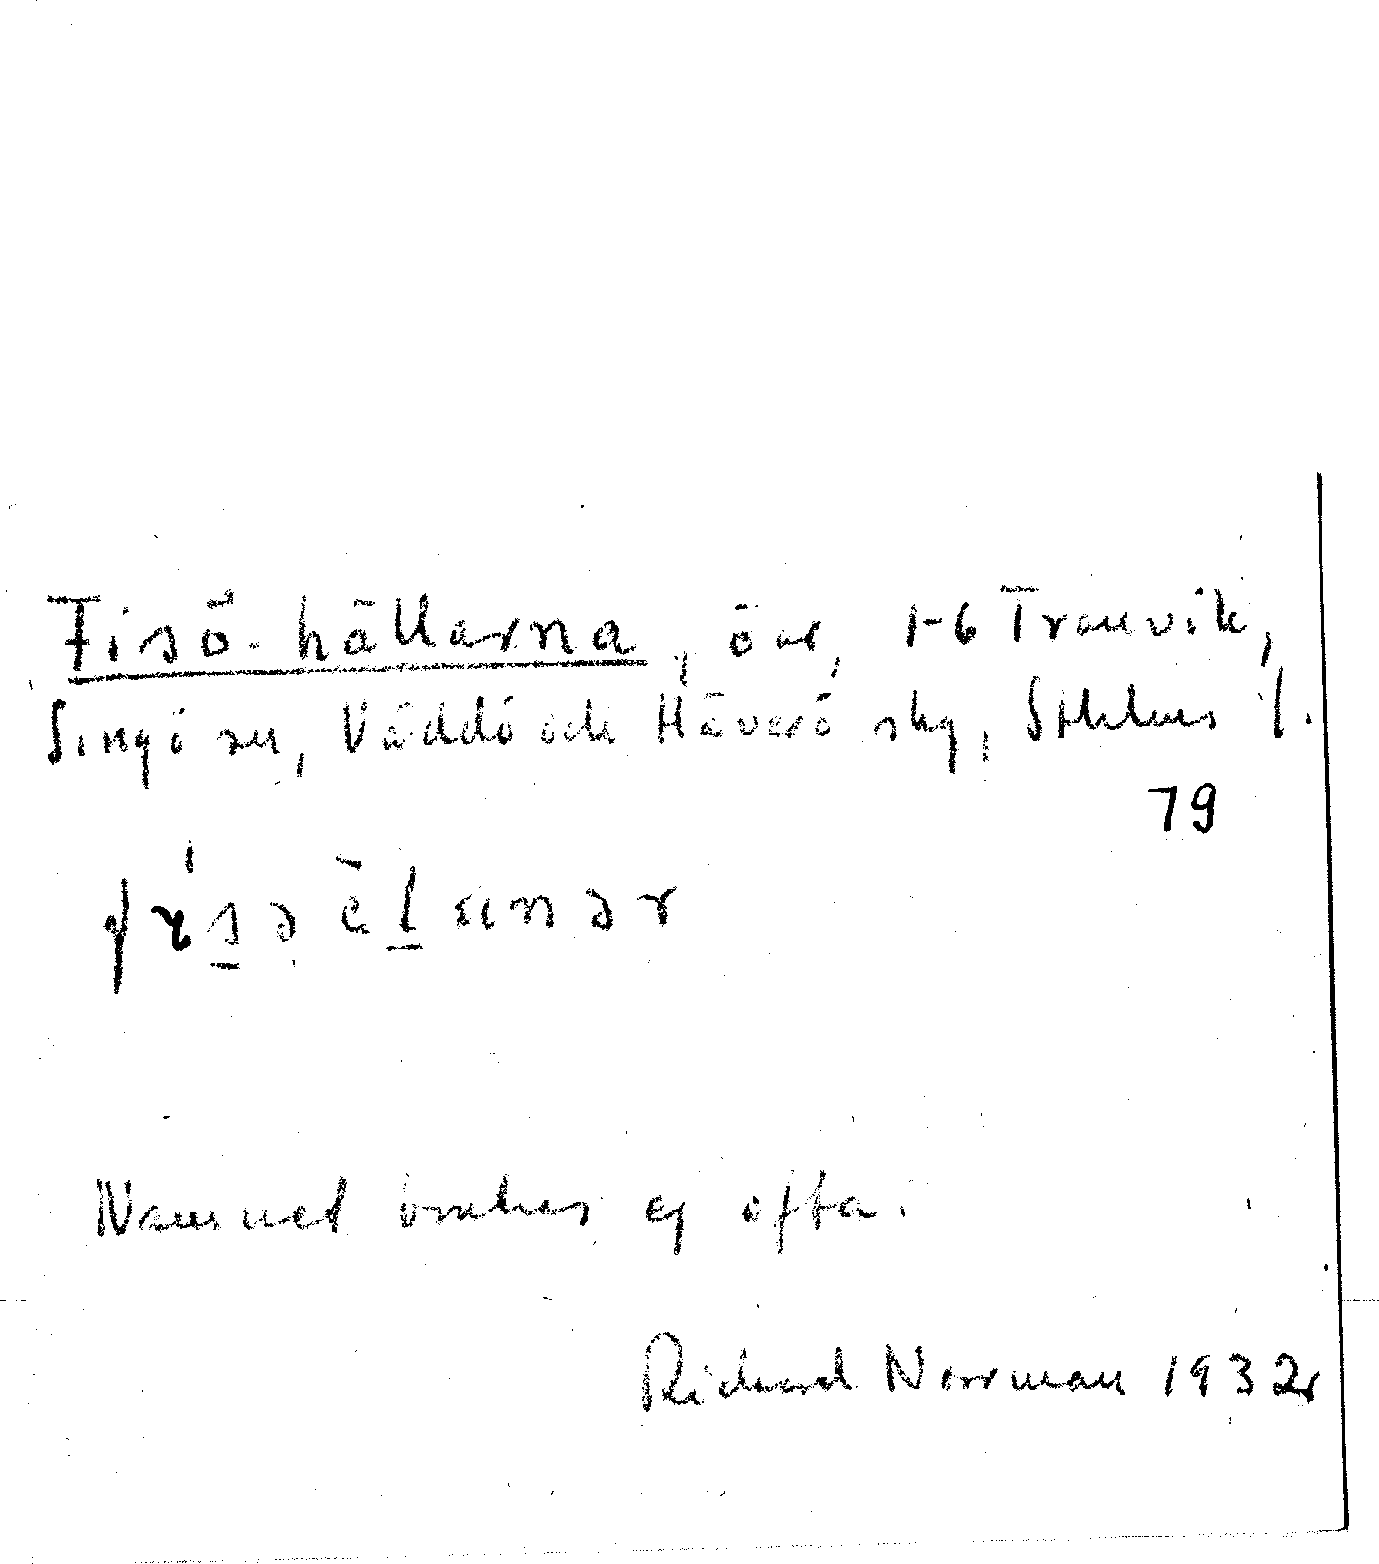 Fisö-hällarna, öar, 1-6 Tranvik,
Singö sn, Väddö och Häverö skg, Sthlms l.
79
Namnet brukas ej ofta.
Richard Norrman 1932